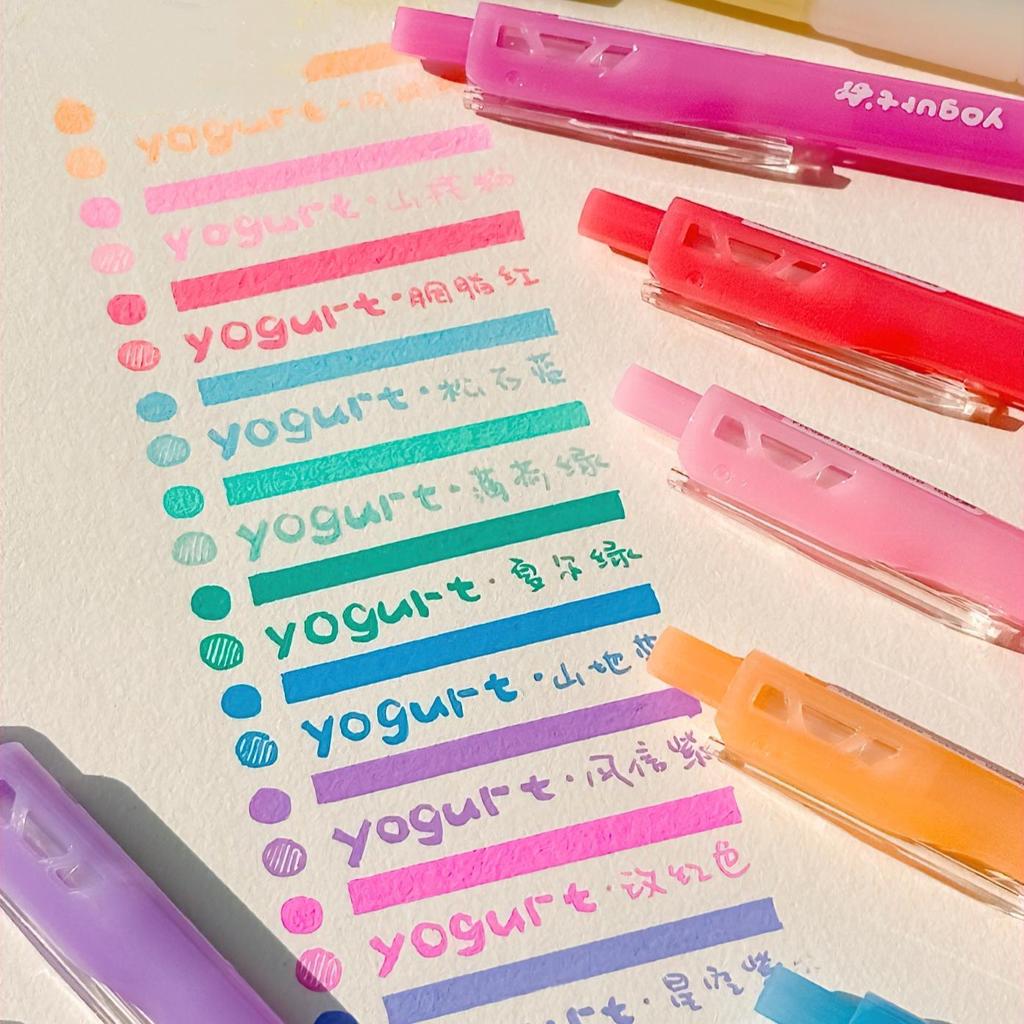 yogurt
yogurt
yogurt · 山茶粉
yogurt · 胭脂红
yogurt · 松石蓝
yogurt · 薄荷绿
yogurt · 夏尔绿
yogurt · 山地
yogurt · 风信紫
yogurt · 玫红色
yogurt · 星空紫